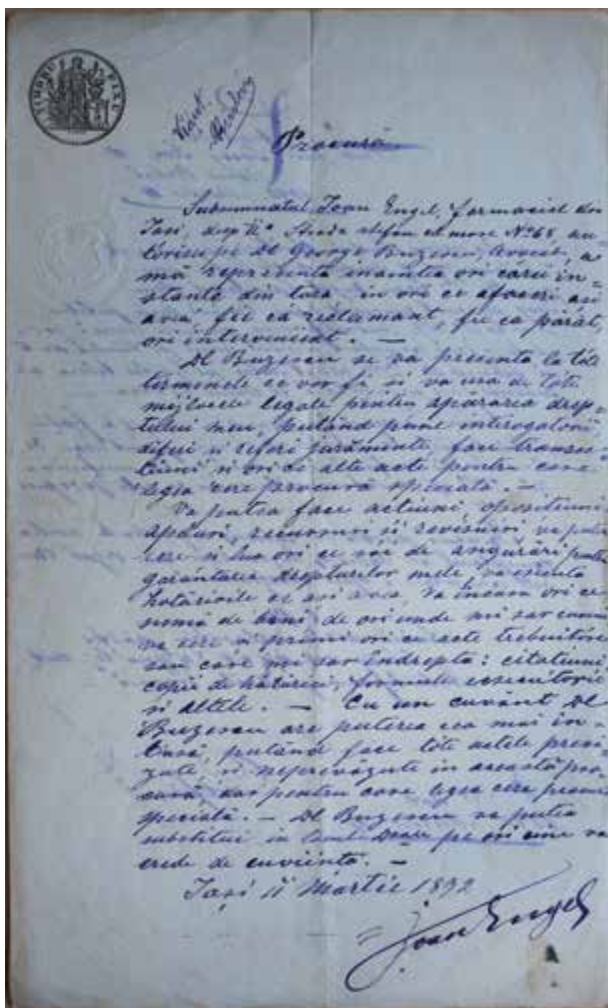 TIMBRU FIX
Procură
Subsemnatul Ioan Engel, farmacist din
Iasi, desp II Strada Stefan cel mare No 68, au-
torisez pe Dl George Buzescu, Avocat, a
mă represinta inaintea ori carei in-
stante din tară, in ori ce afaceri, asi
avea, fie ca reclamant, fie ca pârât,
ori intervenient. —
Dl Buzescu se va presenta la tote
termenele ce vor fi si va usa de tote
mijlocele legale pentru apărarea drep-
tului meu, putênd pune interogatorii
diferi si referi jurăminte, face transac-
tiuni si ori ce alte acte pentru care
legea cere procură specială. —
Va putea face actiuni, opositiuni
apeluri, recursuri si revisuiri va putea
cere si lua ori ce măsuri de asigurări pentru
garantarea drepturilor mele, va esecuta
hotărîrile ce asi avea, va incasa ori ce
sumă de bani de ori unde mi sar cuveni
va cere si primi ori ce acte trebuitore
sau care mi sar îndrepta: citatiuni
copii de hotărîri, formule esecutorii
si altele. — Cu un cuvânt Dl
Buzescu are puterea cea mai în-
tinsă, putând face tote actele prevă-
zute, si neprevăzute in această pro-
cură dar pentru care legea cere procură
specială. — Dl Buzescu va putea
substitui in totul pe ori cine va
crede de cuviintă. —
Iasi 11 Martie 1892
Ioan Engel